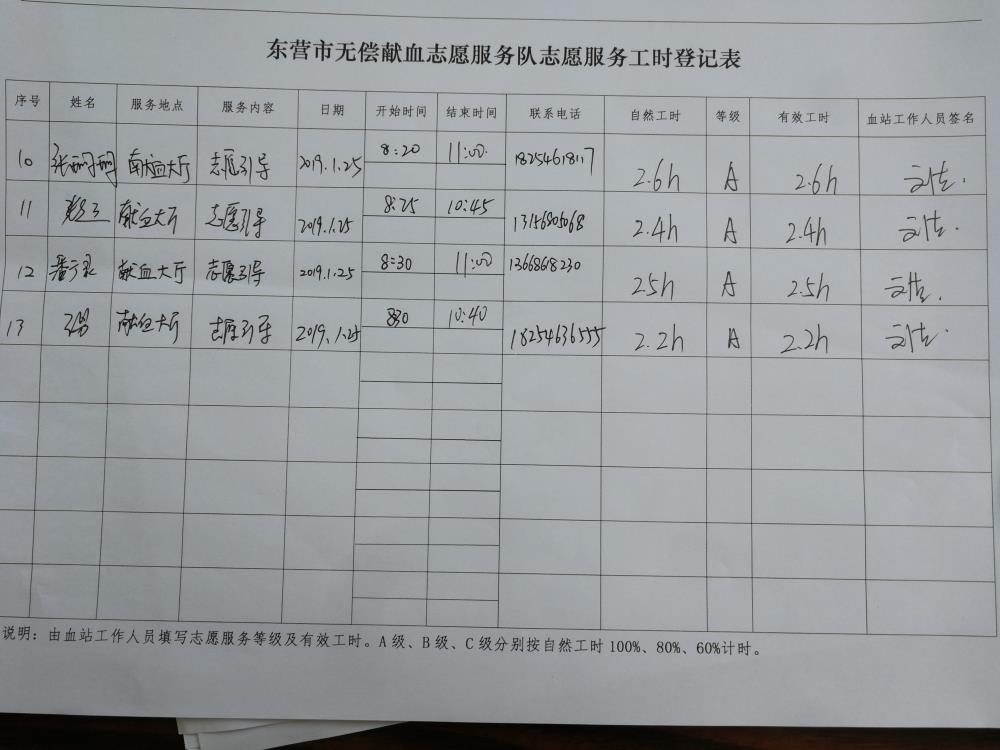 东营市无偿献血志愿服务队志愿服务工时登记表
序号 姓名 服务地点 服务内容 日期 开始时间 结束时间 联系电话 自然工时 等级 有效工时 血站工作人员签名
10 张丽丽 献血大厅 志愿引导 2019.1.25 8:20 11:00 18254618117 2.6h A 2.6h
11 献血大厅 志愿引导 2019.1.25 8:25 10:45 2.4h A 2.4h
12 献血大厅 志愿引导 2019.1.25 8:30 11:00 1366868230 25h A 2.5h
13 献血大厅 志愿引导 2019.1.25 830 10:40 18254636555 2.2h A 2.2h
说明：由血站工作人员填写志愿服务等级及有效工时。A 级、B 级、C 级分别按自然工时 100%、80%、60%计时。